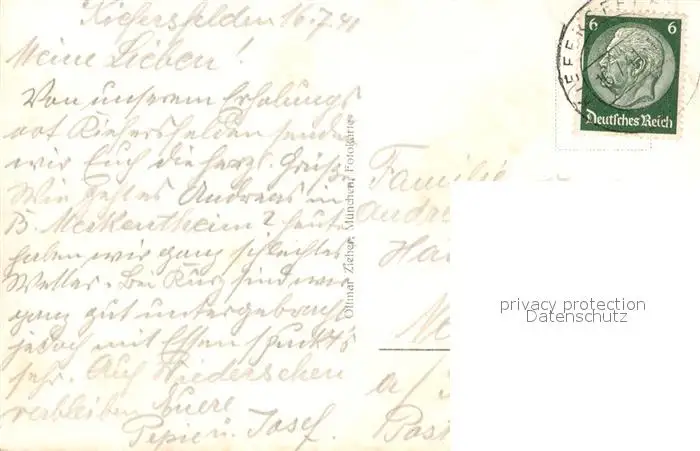 Kiefersfelden 16.7.40
Meine Lieben!
Von unserem Erholungs
ort Kiefersfelden senden
wir Euch die herzl. Grüße
Wie geht es Andreas in
B. Merkentheim? heute
haben wir ganz schlechtes
Wetter. Bei Kurz sind wir
ganz gut untergebracht
jedoch mit Essen spuckt's
sehr. Auf Wiedersehen
verbleiben Euere
Pepi u. Josef.
Ottmar Zieher, München, Fotokarte
6 6
Deutsches Reich
Familie
Andr
Hai
a/
Post
privacy protection
Datenschutz